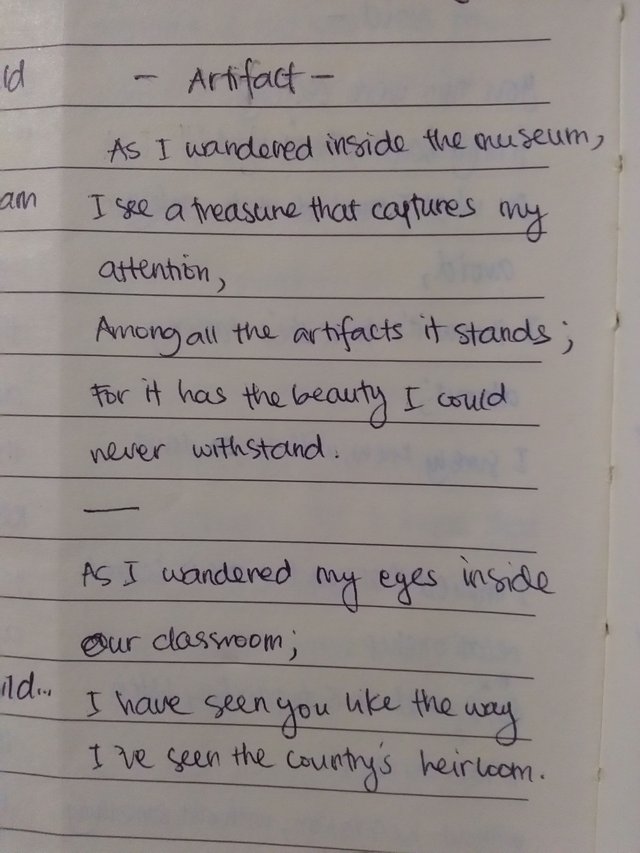 - Artifact -
As I wandered inside the museum,
am
I see a treasure that captures my
attention,
Among all the artifacts it stands;
For it has the beauty I could
never withstand.
—
As I wandered my eyes inside
our classroom;
ild...
I have seen you like the way
I've seen the country's heirloom.